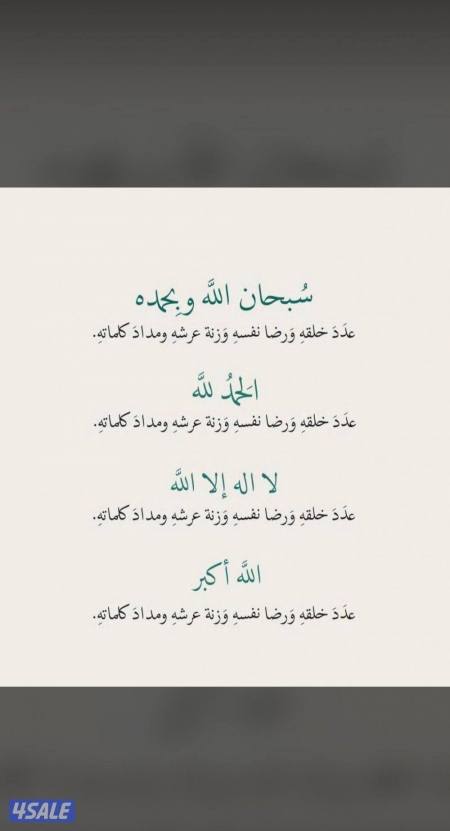 سُبحان اللَّه وبِحمده
عدَدَ خلقهِ وَرضا نفسهِ وَزنة عرشهِ ومدادَ كلماتهِ.
الحَمدُ للَّه
عدَدَ خلقهِ وَرضا نفسهِ وَزنة عرشهِ ومدادَ كلماتهِ.
لا اله إلا اللَّه
عدَدَ خلقهِ وَرضا نفسهِ وَزنة عرشهِ ومدادَ كلماتهِ.
اللَّه أكبر
عدَدَ خلقهِ وَرضا نفسهِ وَزنة عرشهِ ومدادَ كلماتهِ.
4SALE